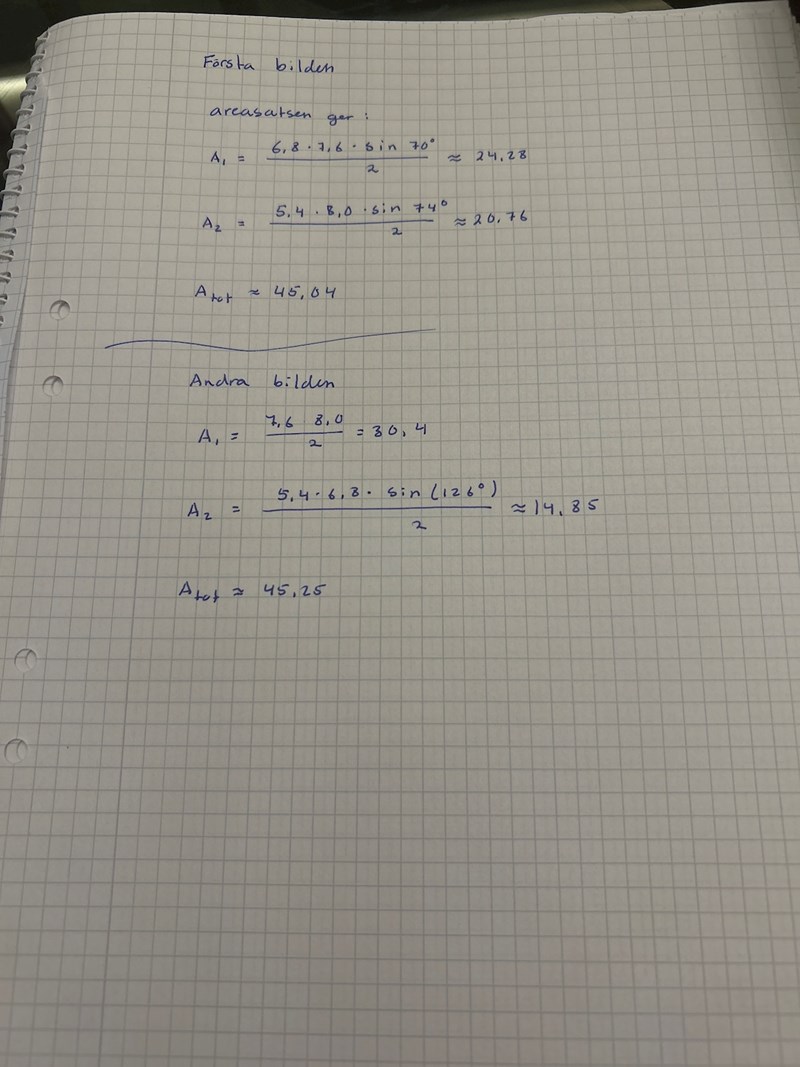 Första bilden
areasatsen ger:
A₁ = 6,8 · 7,6 · sin 70° / 2 ≈ 24,28
A₂ = 5,4 · 8,0 · sin 74° / 2 ≈ 20,76
Atot ≈ 45,04
Andra bilden
A₁ = 7,6 8,0 / 2 = 30,4
A₂ = 5,4 · 6,8 · sin(126°) / 2 ≈ 14,85
Atot ≈ 45,25